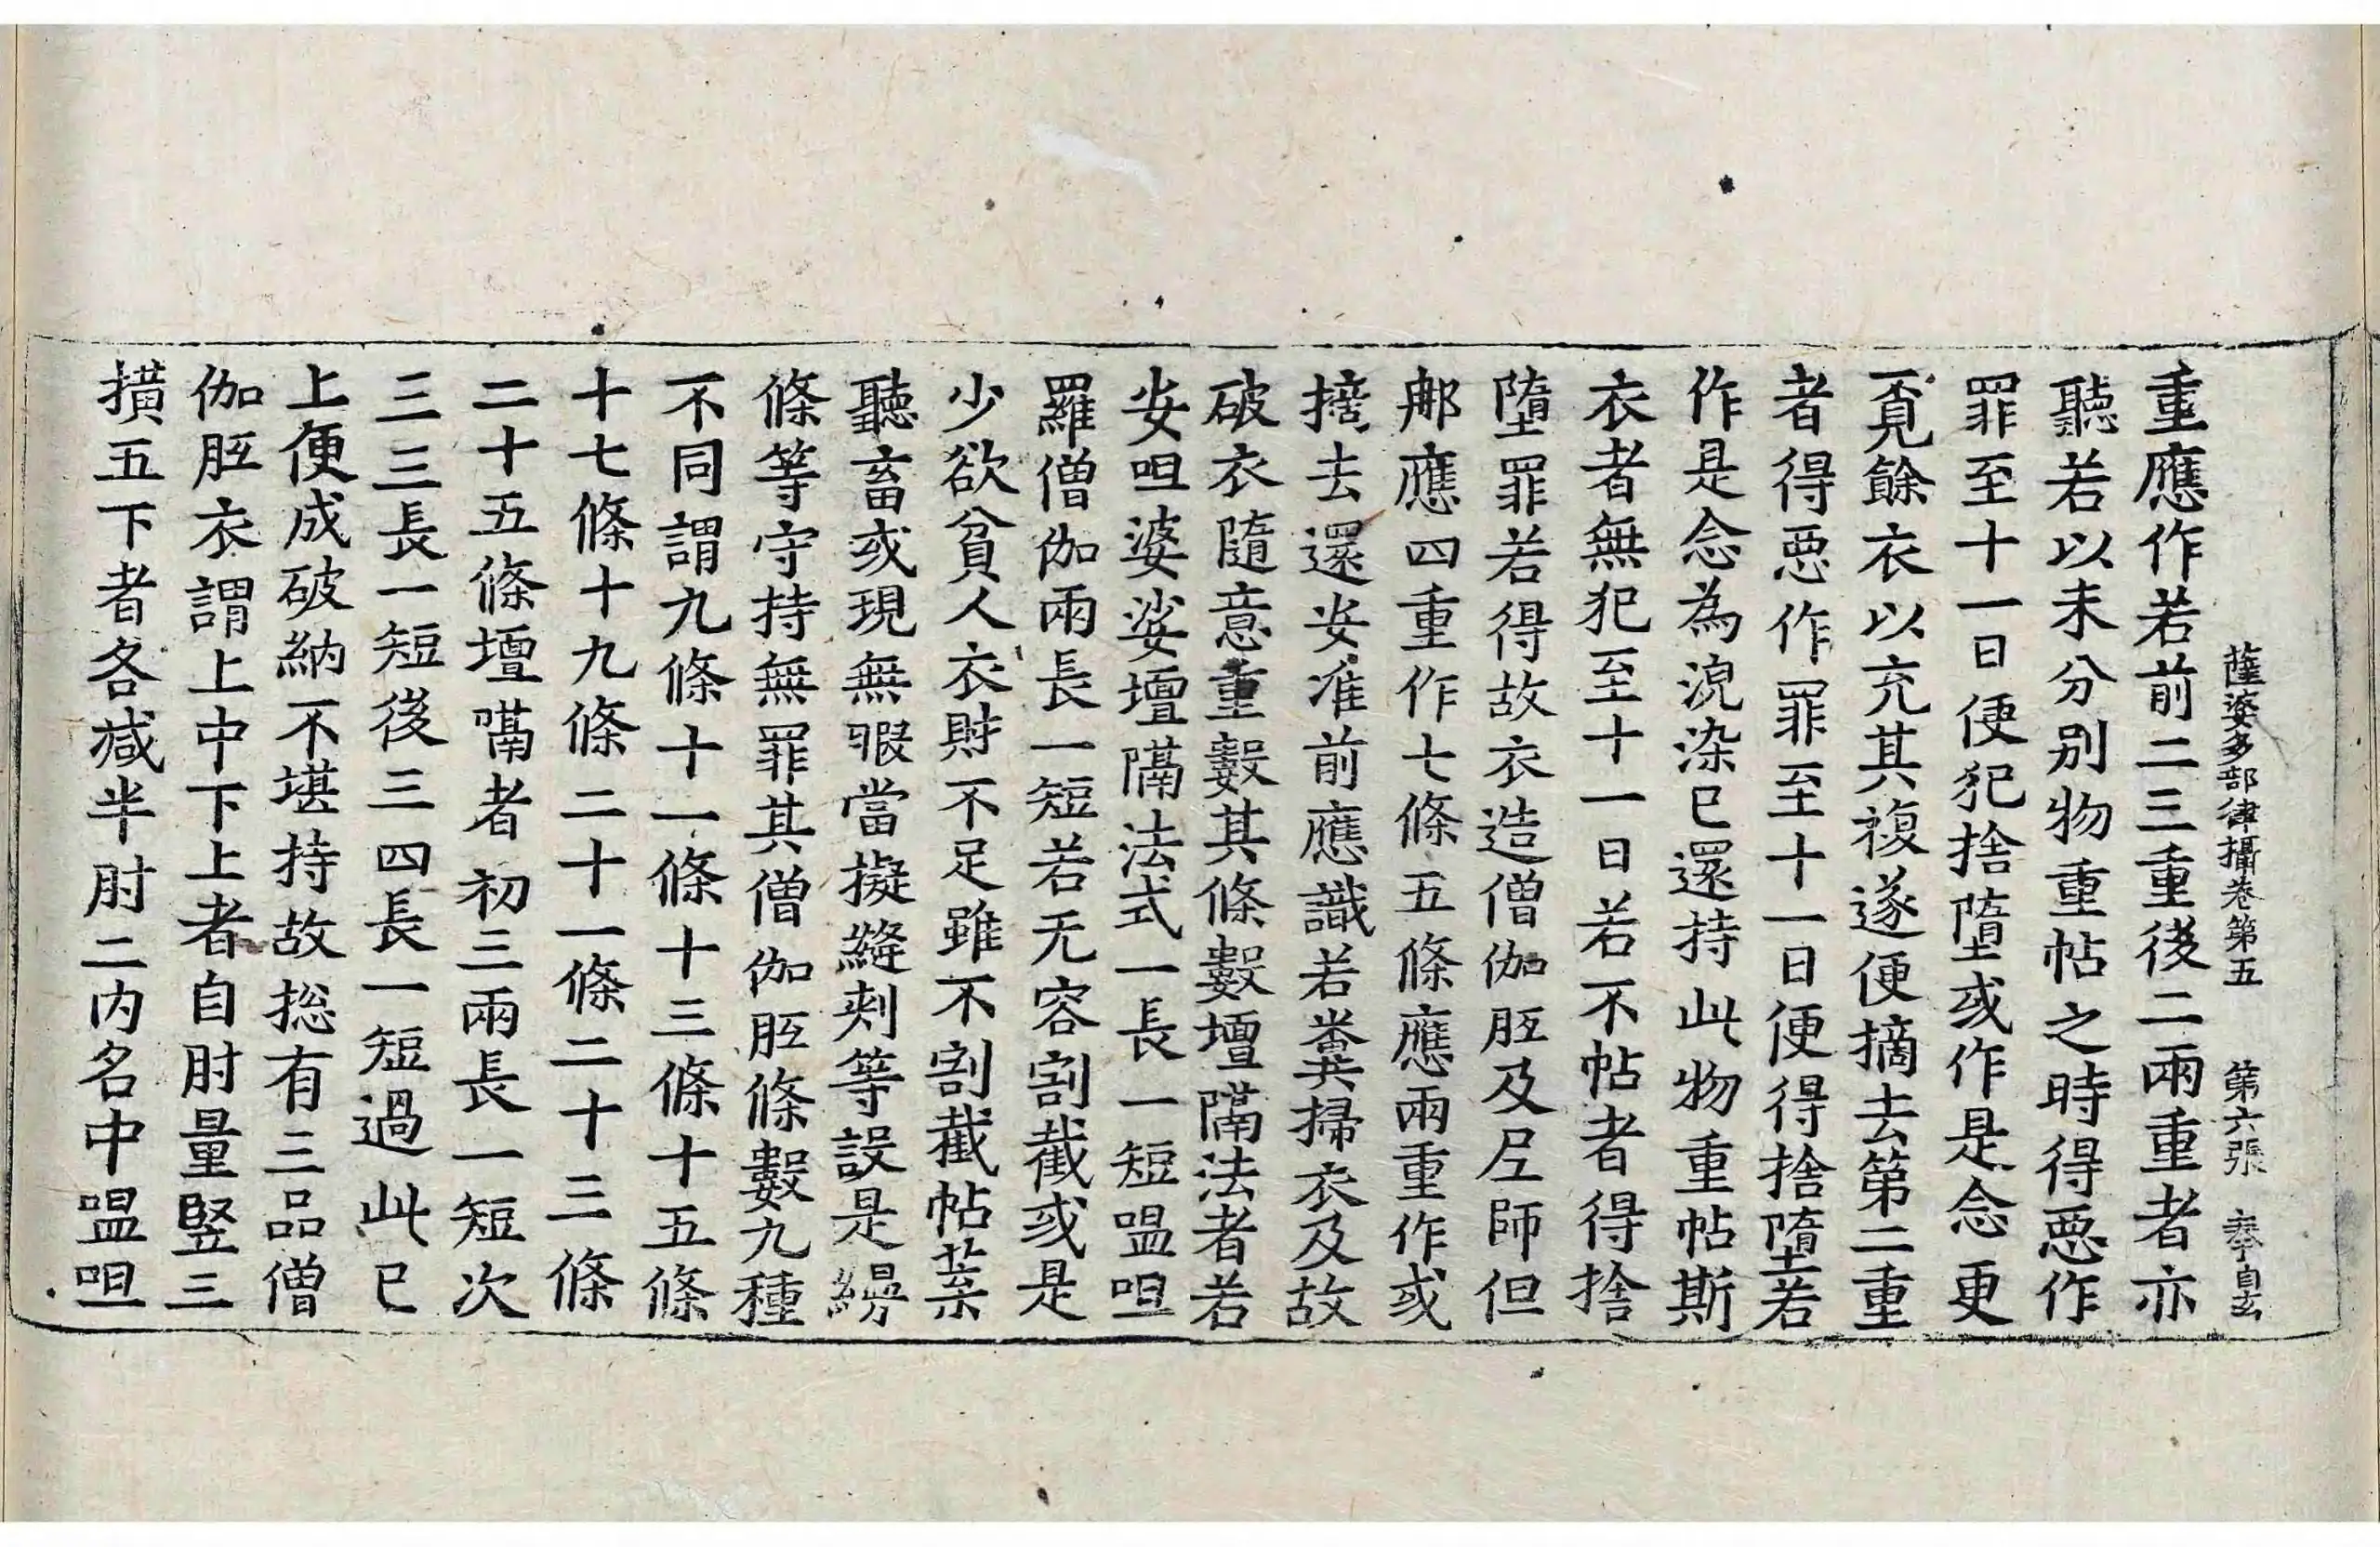 薩婆多部律攝卷第五　第六張　奉自玄
重應作若前二三重後二兩重者亦
聽若以未分别物重帖之時得惡作
罪至十一日便犯捨墮或作是念更
覔餘衣以充其複遂便摘去第二重
者得惡作罪至十一日便得捨墮若
作是念為浣染已還持此物重帖斯
衣者無犯至十一日若不帖者得捨
墮罪若得故衣造僧伽胝及尼師但
𨙻應四重作七條五條應兩重作或
擿去還安准前應識若糞掃衣及故
破衣隨意重數其條數壇隔法者若
安呾婆娑壇隔法式一長一短嗢呾
羅僧伽兩長一短若无容割截或是
少欲貧人衣財不足雖不割截帖葉
聽畜或現無暇當擬縫刾等設是縵
條等守持無罪其僧伽胝條數九種
不同謂九條十一條十三條十五條
十七條十九條二十一條二十三條
二十五條壇隔者初三兩長一短次
三三長一短後三四長一短過此已
上便成破納不堪持故揔有三品僧
伽胝衣謂上中下上者自肘量竪三
撗五下者各减半肘二内名中嗢呾